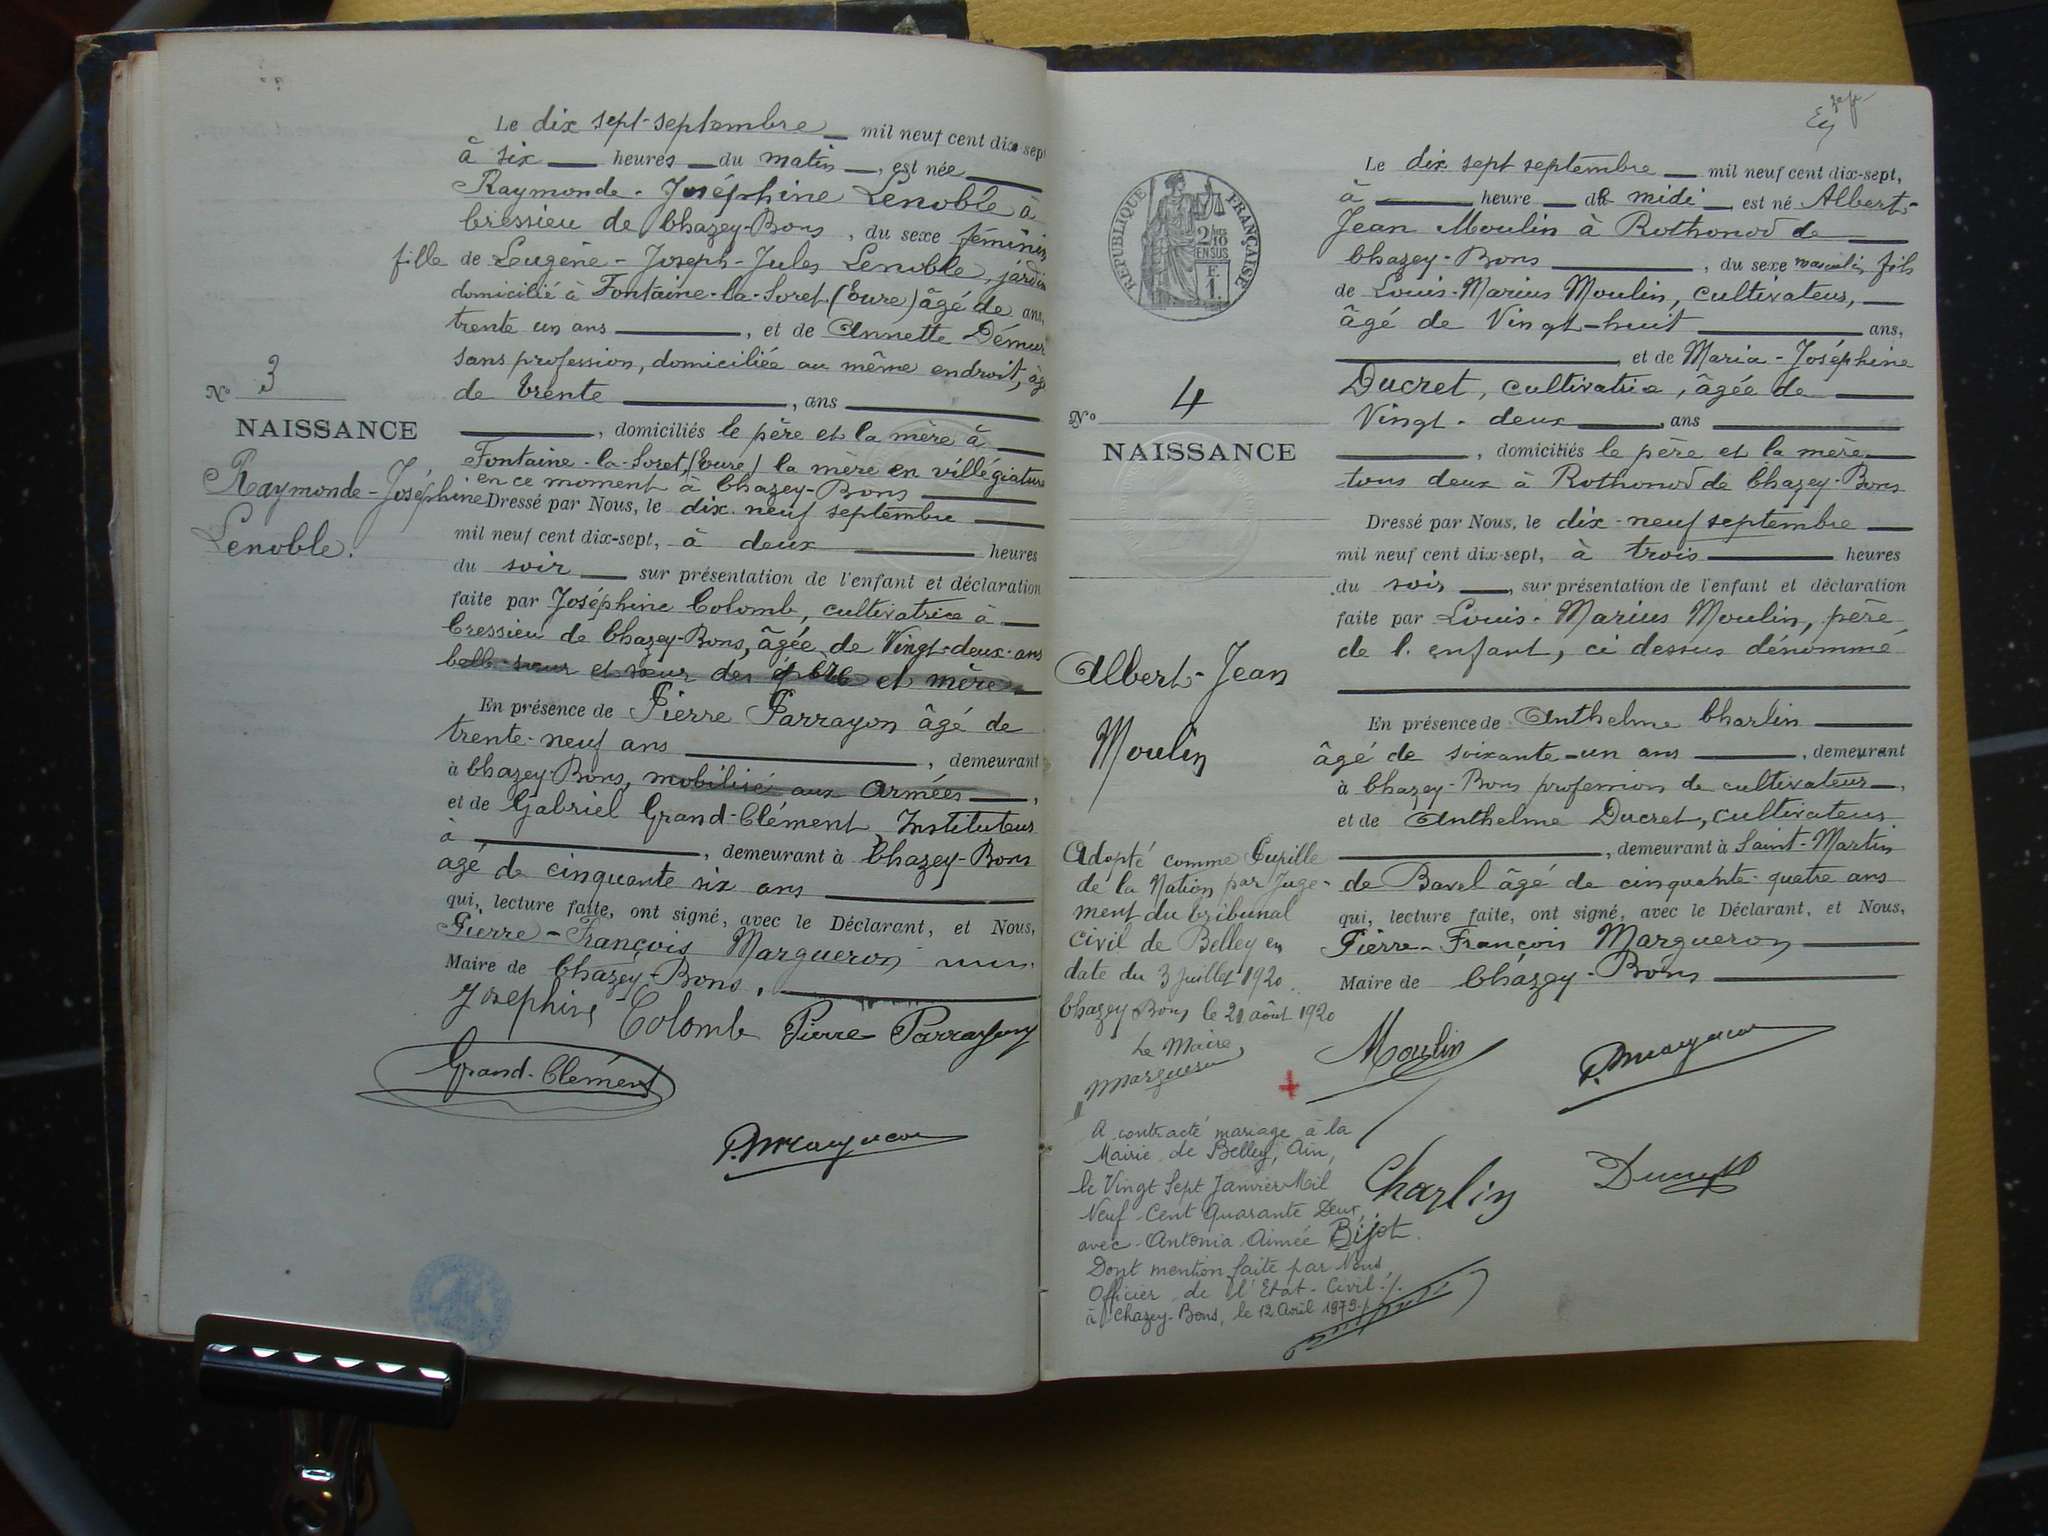 Le dix sept-septembre mil neuf cent dix-sept
à six heures du matin, est née
Raymonde-Joséphine Lenoble à
Cressieu de Chazey-Bons, du sexe féminin
fille de Eugène-Joseph-Jules Lenoble, jardin
domicilié à Fontaine-la-Soret (Eure) âgé de ans,
trente un ans, et de Annette Démur
sans profession, domiciliée au même endroit, âg
de trente, ans
, domiciliés le père et la mère à
Fontaine-la-Soret, (Eure) la mère en villégiature
en ce moment à Chazey-Bons
Dressé par Nous, le dix-neuf septembre
mil neuf cent dix-sept, à deux heures
du soir sur présentation de l'enfant et déclaration
faite par Joséphine Colomb, cultivatrice à
Cressieu de Chazey-Bons, âgée de Vingt-deux-ans
belle-sœur et sœur des père et mère
En présence de Pierre Parrayon âgé de
trente-neuf ans, demeurant
à Chazey-Bons, mobilisé aux Armées,
et de Gabriel Grand-Clément, Instituteur
à, demeurant à Chazey-Bons
agé de cinquante six ans
qui, lecture faite, ont signé, avec le Déclarant, et Nous,
Pierre-François Margueron
Maire de Chazey-Bons.
Josephine Colomb Pierre Parrayon
Grand-Clément
P. Margueron
No 3
NAISSANCE
Raymonde-Joséphine
Lenoble.
RÉPUBLIQUE FRANÇAISE
2/10
EN SUS
F.
1.
Le dix sept septembre mil neuf cent dix-sept,
à heure de midi, est né Albert-
Jean Moulin à Rothonod de
Chazey-Bons, du sexe masculin fils
de Louis-Marius Moulin, cultivateur,
âgé de Vingt-huit ans,
et de Maria-Joséphine
Ducret, cultivatrice, âgée de
Vingt-deux, ans
, domiciliés le père et la mère
tous deux à Rothonod de Chazey-Bons
Dressé par Nous, le dix-neuf septembre
mil neuf cent dix-sept, à trois heures
du soir, sur présentation de l'enfant et déclaration
faite par Louis-Marius Moulin, père
de l'enfant, ci dessus dénommé
En présence de Anthelme Charlin
âgé de soixante-un ans, demeurant
à Chazey-Bons profession de cultivateur,
et de Anthelme Ducret, cultivateur
, demeurant à Saint-Martin
de Bavel âgé de cinquante-quatre ans
qui, lecture faite, ont signé, avec le Déclarant, et Nous,
Pierre-François Margueron
Maire de Chazey-Bons
Moulin P. Margueron
Charlin Ducret
No 4
NAISSANCE
Albert-Jean
Moulin
Adopté comme Pupille
de la Nation par Juge-
ment du tribunal
civil de Belley en
date du 3 Juillet 1920.
Chazey-Bons le 21 août 1920
Le Maire,
Margueron
A contracté mariage à la
Mairie de Belley, Ain,
le Vingt Sept Janvier Mil
Neuf-Cent Quarante Deux,
avec Antonia Aimée Bijot.
Dont mention faite par Nous,
Officier de l'Etat-Civil
à Chazey-Bons, le 12 Avril 1979